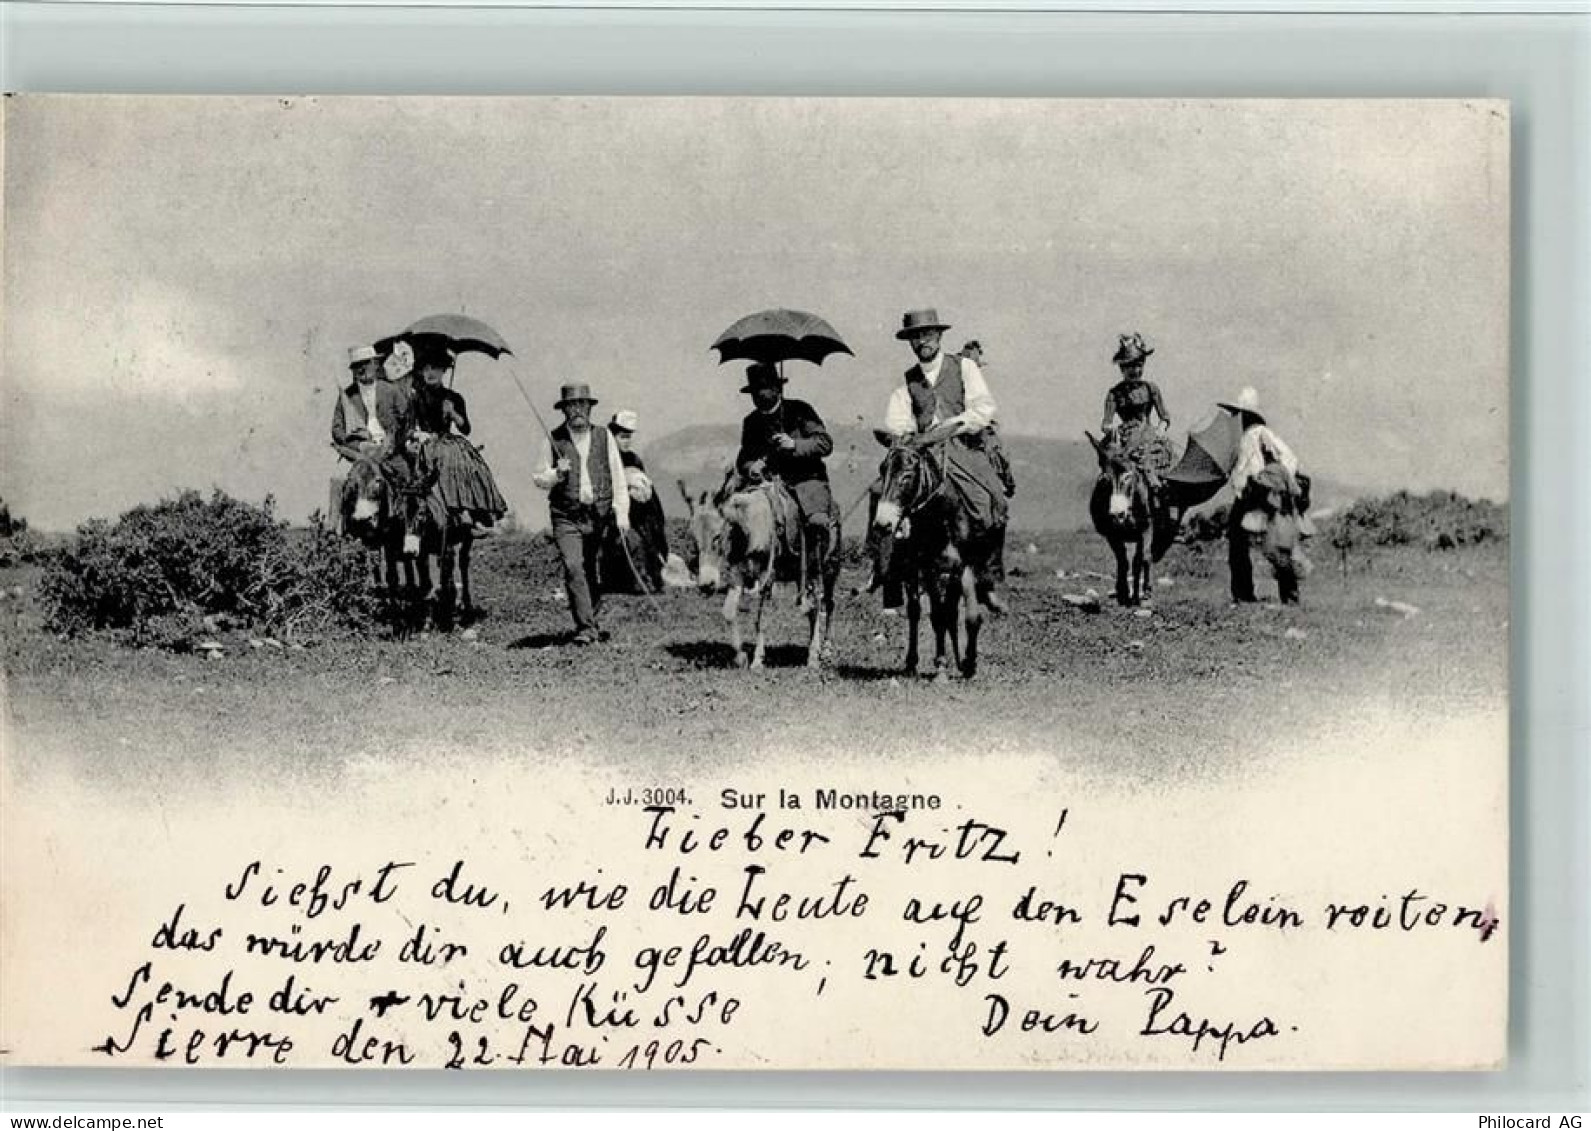 J.J.3004. Sur la Montagne.
Lieber Fritz!
Siehst du, wie die Leute auf den Eselein reiten,
das würde dir auch gefallen, nicht wahr?
Sende dir viele Küsse
Dein Pappa.
Sierre den 22. Mai 1905.
www.delcampe.net
Philocard AG